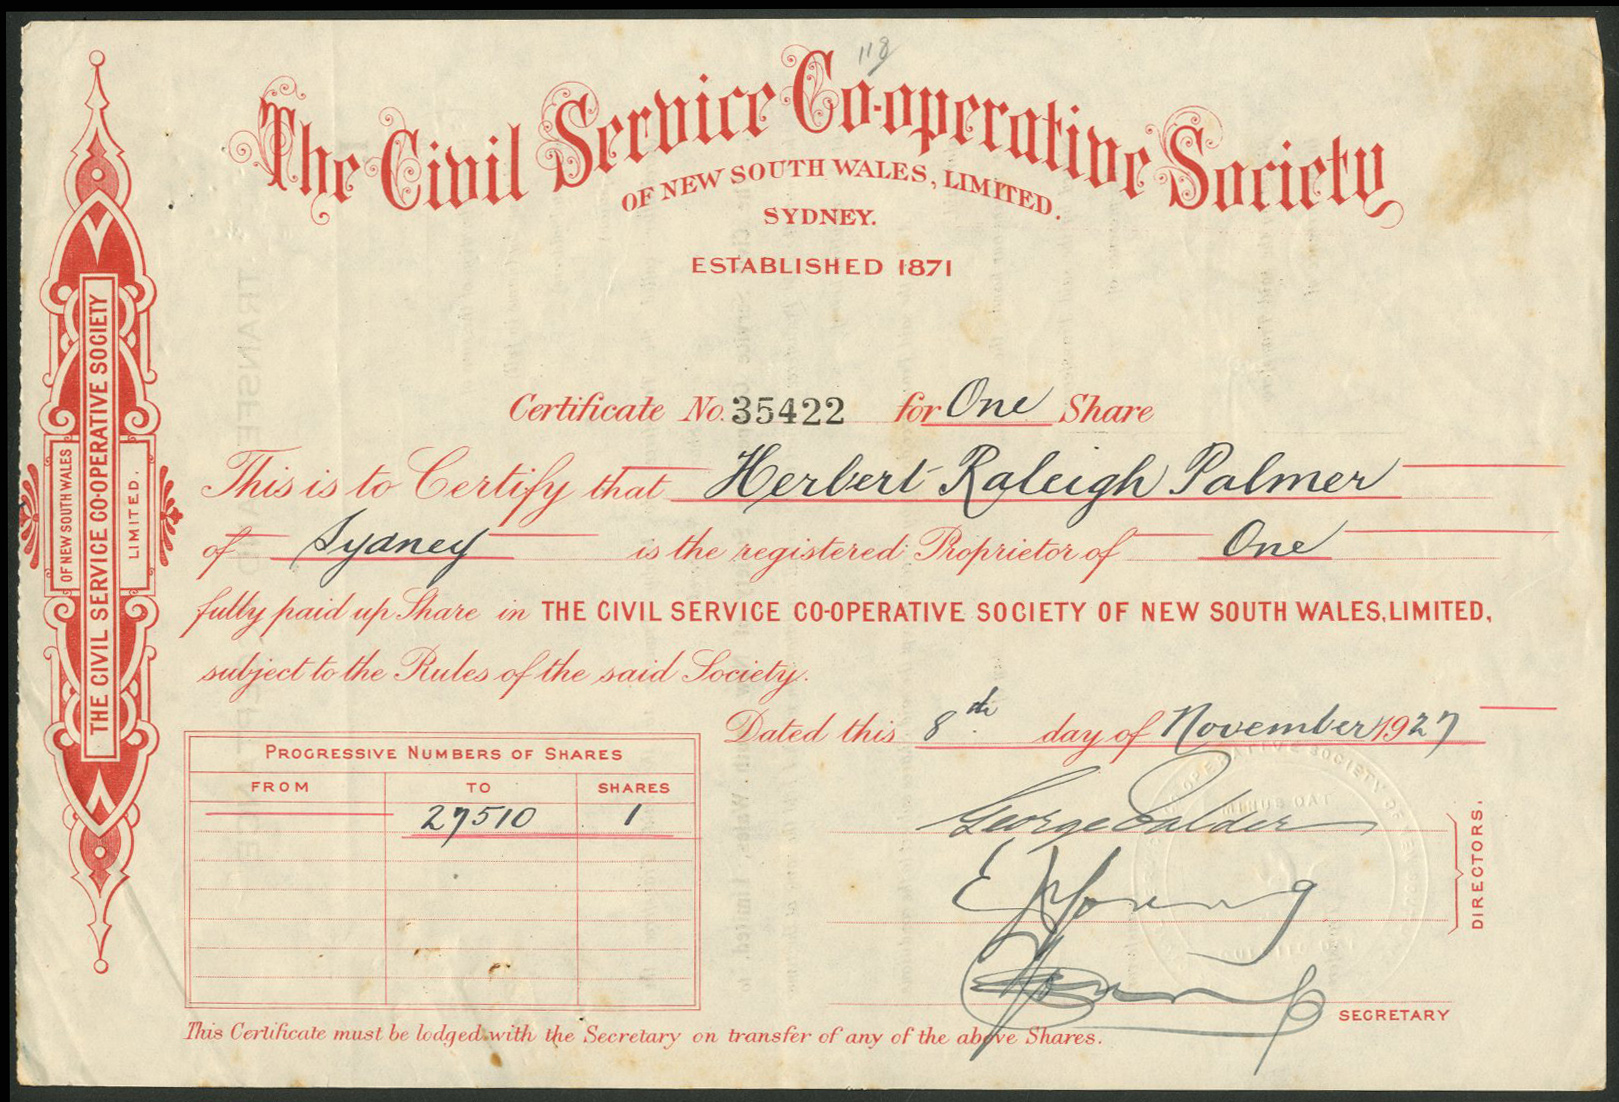 118
The Civil Service Co-operative Society
OF NEW SOUTH WALES, LIMITED.
SYDNEY.
ESTABLISHED 1871
THE CIVIL SERVICE CO-OPERATIVE SOCIETY
OF NEW SOUTH WALES
LIMITED.
Certificate No. 35422 for One Share
This is to Certify that Herbert Raleigh Palmer
of Sydney is the registered Proprietor of One
fully paid up Share in THE CIVIL SERVICE CO-OPERATIVE SOCIETY OF NEW SOUTH WALES, LIMITED,
subject to the Rules of the said Society.
Dated this 8th day of November 1927
PROGRESSIVE NUMBERS OF SHARES
FROM TO SHARES
27510 1
George Calder
E Young
DIRECTORS.
SECRETARY
This Certificate must be lodged with the Secretary on transfer of any of the above Shares.